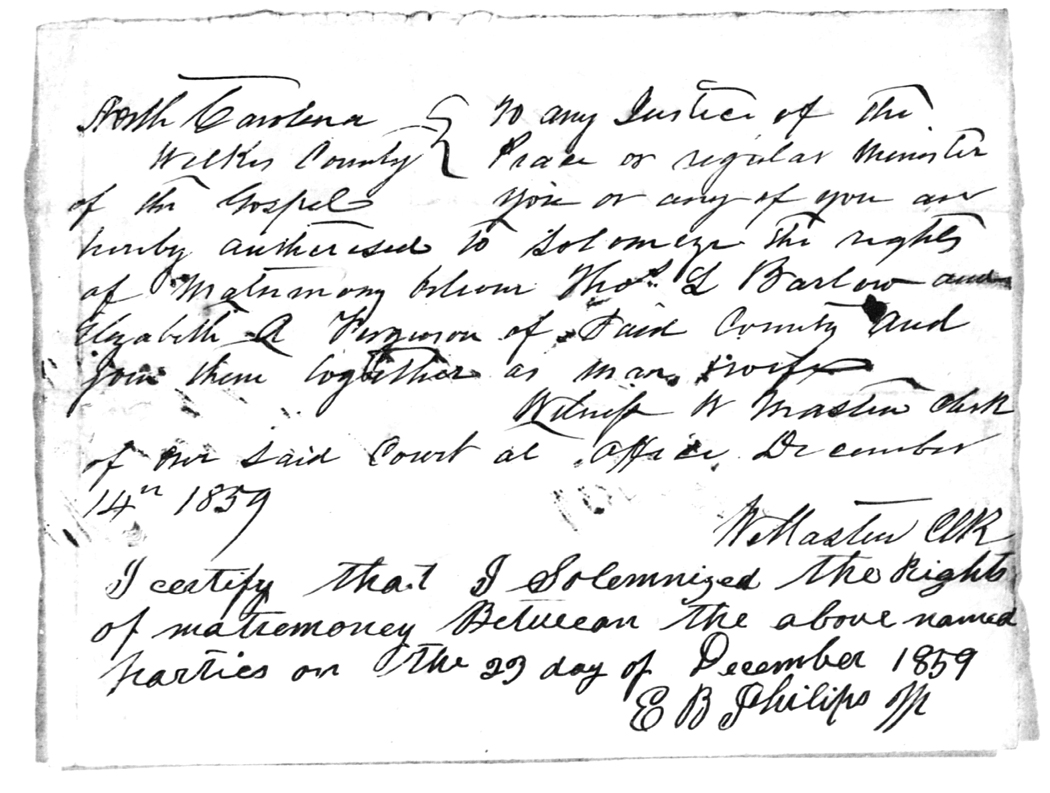 North Carolina } To any Justice of the
Wilkes County } Peace or regular Minister
of the Gospel You or any of you are
hereby authorised to Solomize the rights
of Matrimony between Thos. L Barlow and
Elizabeth A Ferguson of Said County and
Join them together as man & wife
Witness W Masten Clerk
of our Said Court at office December
14th 1859
W Masten Clk
I certify that I Solemnized the Rights
of matremoney Betweean the above named
parties on the 23 day of December 1859
E B Philips JP